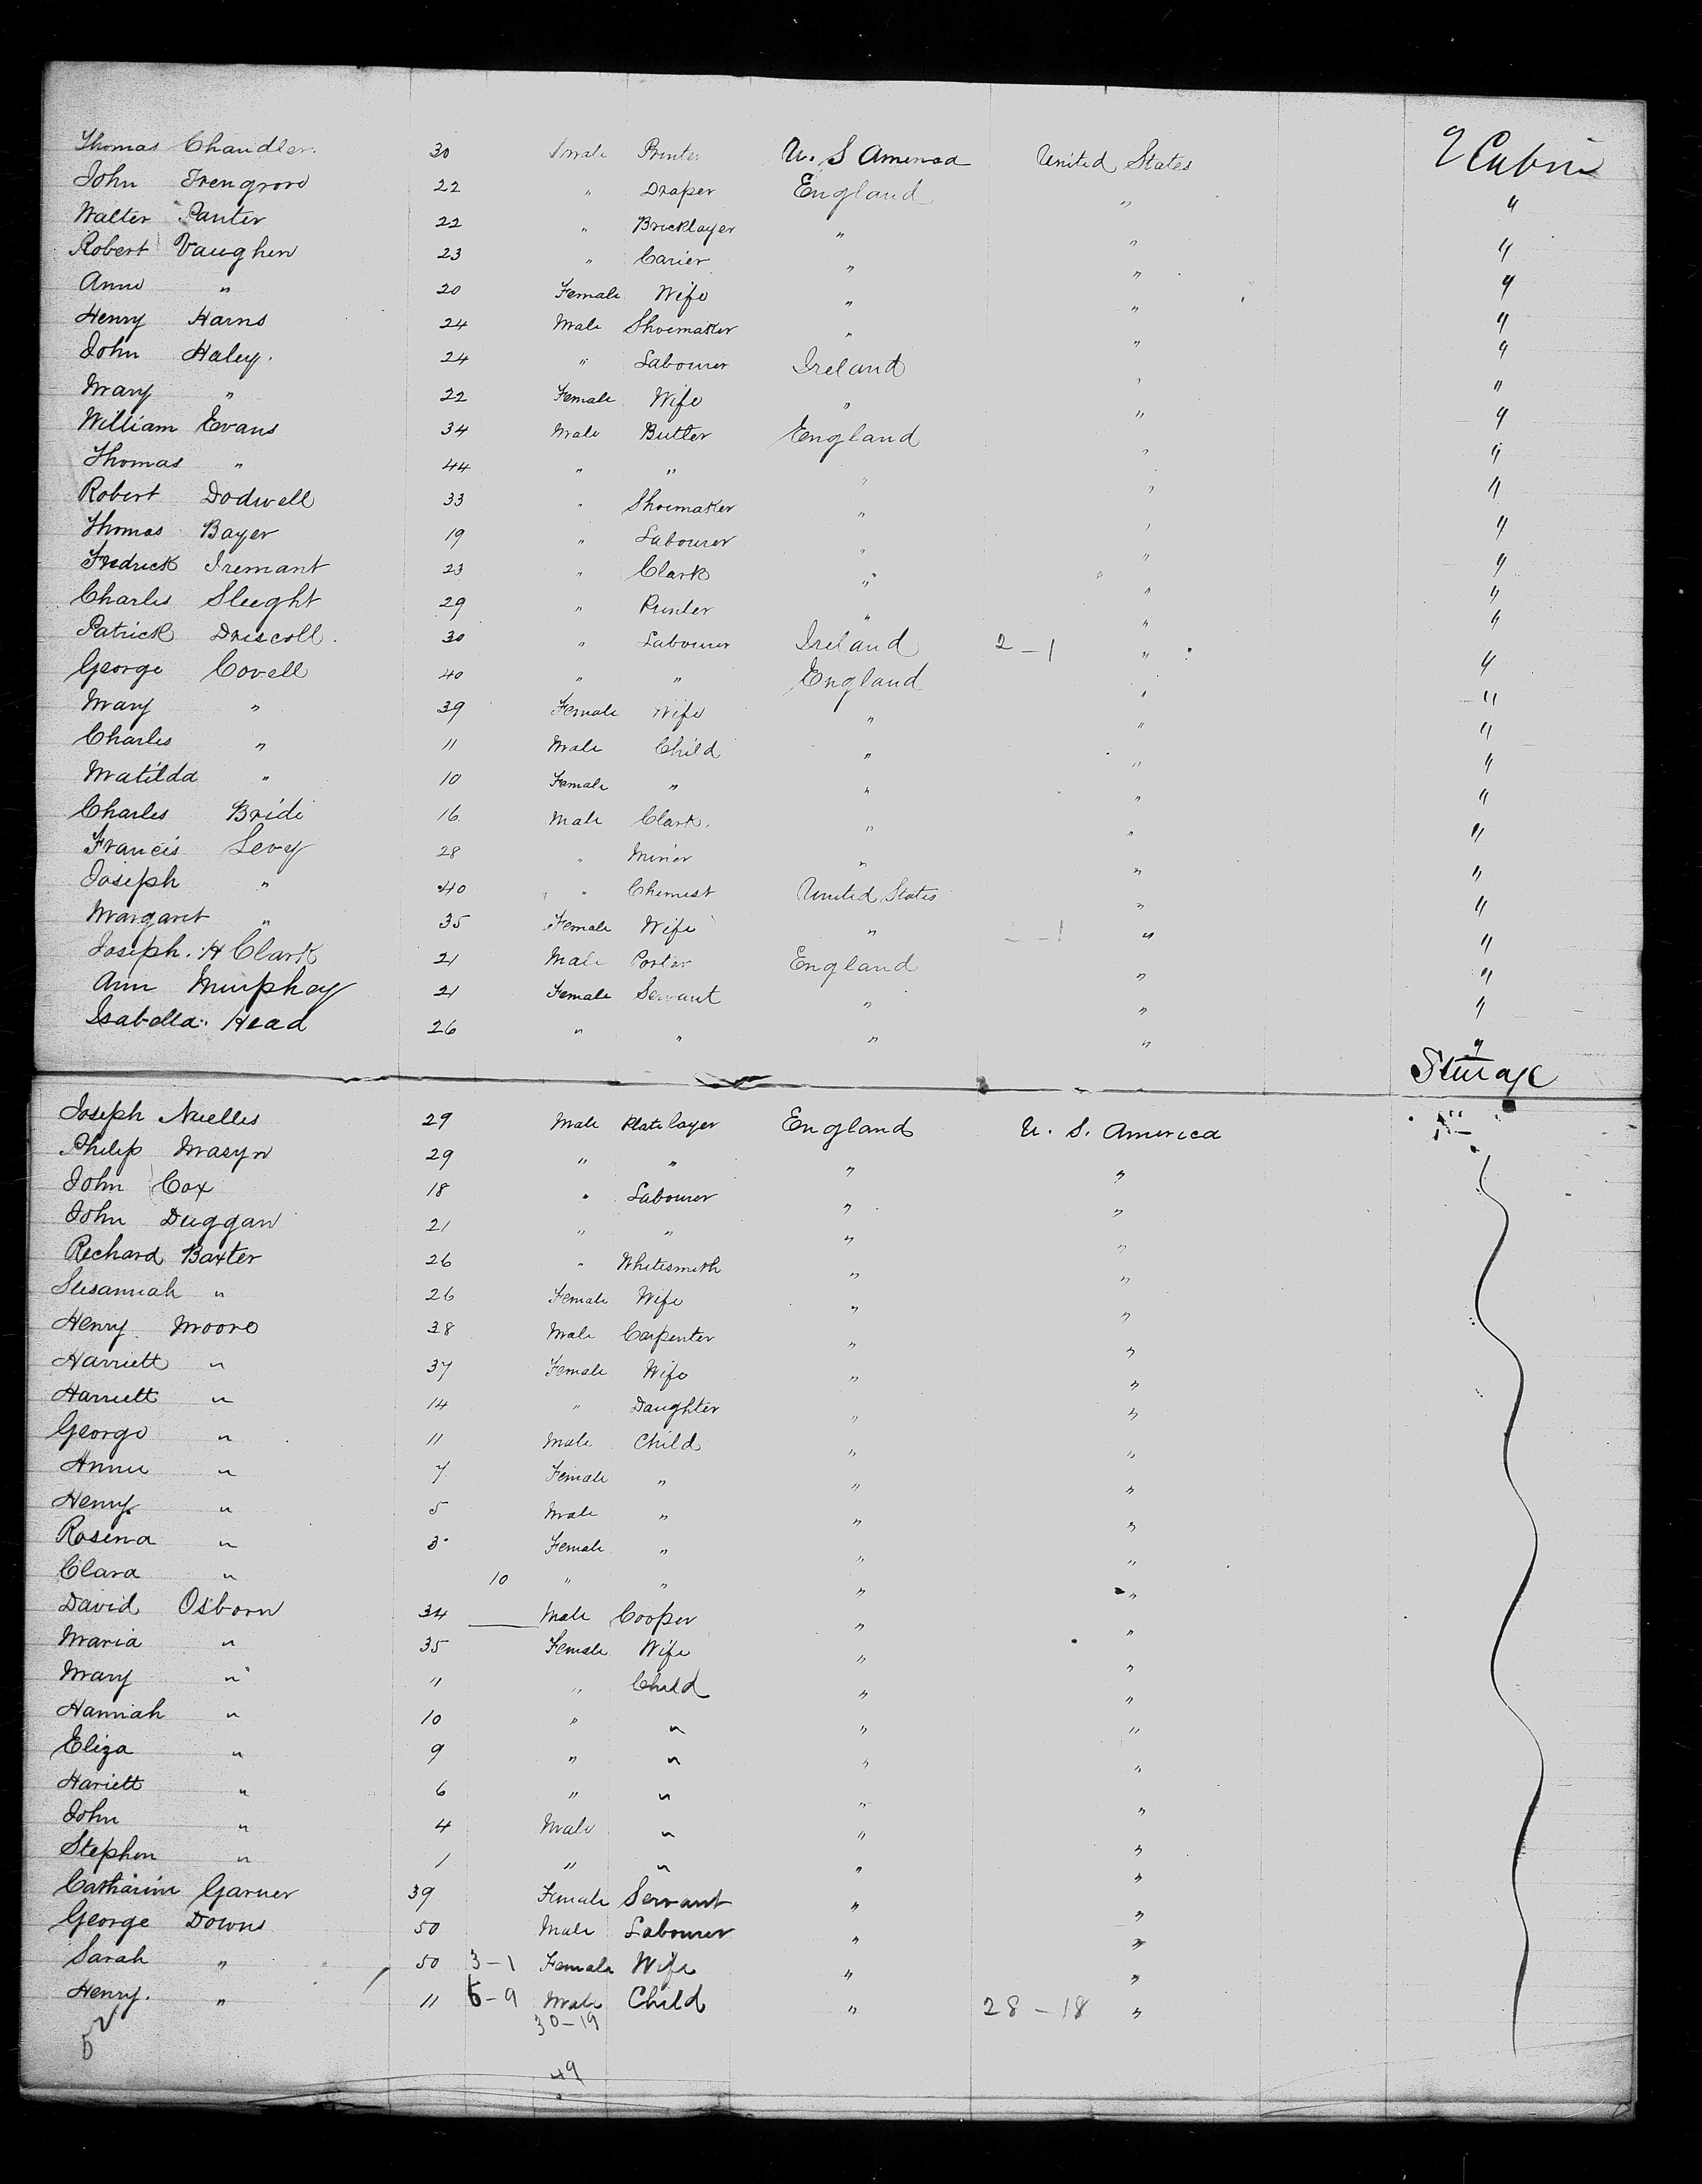 Thomas Chandler. 30 Male Printer U. S America United States 2 Cabin
John Trengrove 22 " Draper England " "
Walter Panter 22 " Bricklayer " " "
Robert Vaughen 23 " Carier " " "
Anne " 20 Female Wife " " "
Henry Harris 24 Male Shoemaker " " "
John Haley. 24 " Labourer Ireland " "
Mary " 22 Female Wife " " "
William Evans 34 Male Butler England " "
Thomas " 44 " " " " "
Robert Dodwell 33 " Shoemaker " " "
Thomas Bayer 19 " Labourer " " "
Fredrick Iremant 23 " Clark " " "
Charles Sleeght 29 " Printer " " "
Patrick Driscoll. 30 " Labourer Ireland 2-1 " "
George Covell 40 " " England " "
Mary " 39 Female Wife " " "
Charles " 11 Male Child " " "
Matilda " 10 Female " " " "
Charles Bride 16 Male Clark. " " "
Francis Levy 28 " Minier " " "
Joseph " 40 " Chemist United States " "
Margaret " 35 Female Wife " - 1 " "
Joseph. H Clark 21 Male Porter England " "
Ann Murphey 21 Female Servant " " "
Isabella. Head 26 " " " " "
Sturage
Joseph Nuelles 29 Male Platelayer England U. S. America
Philip Masyn 29 " " " "
John Cox 18 " Labourer " "
John Duggan 21 " " " "
Richard Baxter 26 " Whitesmith " "
Susannah " 26 Female Wife " "
Henry. Moore 38 Male Carpenter " "
Harriett " 37 Female Wife " "
Harriett " 14 " Daughter " "
George " 11 Male Child " "
Annie " 7 Female " " "
Henry. " 5 Male " " "
Rosena " 3 Female " " "
Clara " 10 " " " "
David Osborn 34 Male Cooper " "
Maria " 35 Female Wife " "
Mary " 11 " Child " "
Hannah " 10 " " " "
Eliza " 9 " " " "
Hariett " 6 " " " "
John " 4 Male " " "
Stephen " 1 " " " "
Catharine Garner 39 Female Servant " "
George Downs 50 Male Labourer " "
Sarah " 50 3-1 Female Wife " "
Henry. " 11 5-9 Male Child " 28-18 "
30-19
49